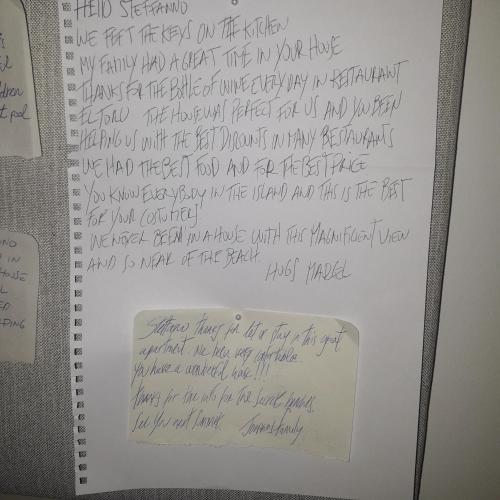 HELLO STEFFANNO
WE LEFT THE KEYS ON THE KITCHEN
MY FAMILY HAD A GREAT TIME IN YOUR HOUSE
THANKS FOR THE BOTTLE OF WINE EVERY DAY IN RESTAURANT
EL TORO THE HOUSE WAS PERFECT FOR US AND YOU BEEN
HELPING US WITH THE BEST DISCOUNTS IN MANY RESTAURANTS
WE HAD THE BEST FOOD AND FOR THE BEST PRICE
YOU KNOW EVERYBODY IN THE ISLAND AND THIS IS THE BEST
FOR YOUR COSTUMERS!
WE NEVER BEEN IN A HOUSE WITH THIS MAGNIFICIENT VIEW
AND SO NEAR OF THE BEACH
HUGS MARCEL
thanks for let us stay in this great
apartment. We been very comfortable.
You have a wonderful !!!
thanks for the info for the secret beaches.
See you next Summer. family
pool
IN
HOUSE